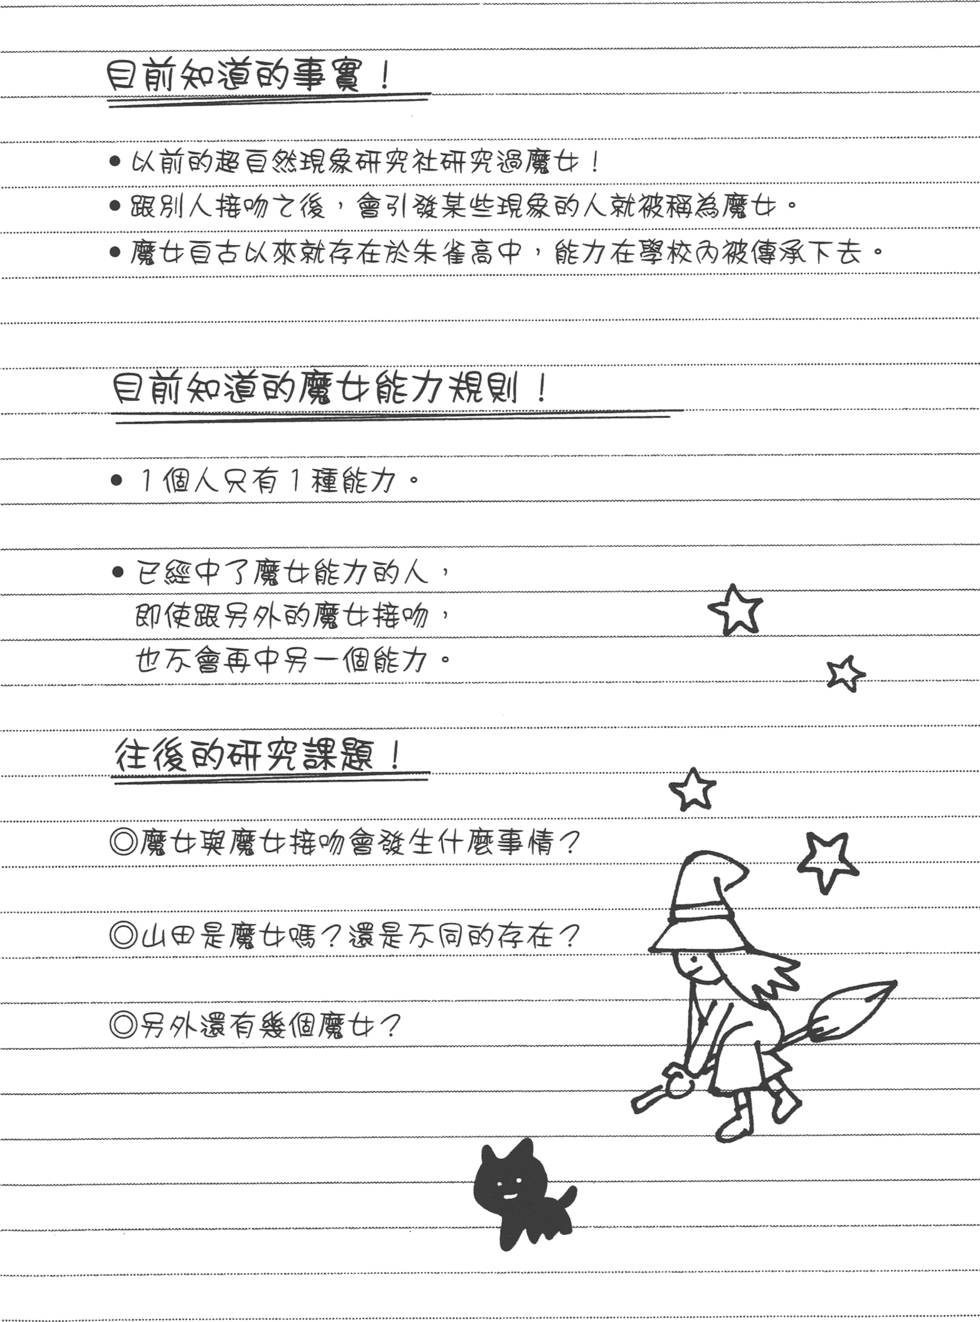 目前知道的事實！
●以前的超自然現象研究社研究過魔女！
●跟別人接吻之後，會引發某些現象的人就被稱為魔女。
●魔女自古以來就存在於朱雀高中，能力在學校內被傳承下去。
目前知道的魔女能力規則！
●１個人只有１種能力。
●已經中了魔女能力的人，
即使跟另外的魔女接吻，
也不會再中另一個能力。
往後的研究課題！
◎魔女與魔女接吻會發生什麼事情？
◎山田是魔女嗎？還是不同的存在？
◎另外還有幾個魔女？